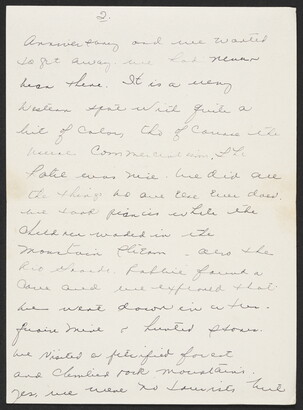 2.
Anniversary and we wanted
to get away. we had never
been there. It is a very
Western spot with quite a
bit of color, tho of course the
usual Commercialism. The
Pobie was nice. We did all
the things no one else ever does.
we took picnics while the
children waded in the
Mountain Stream, also the
Rio Grande. Robbie found a
Cave and we explored that
we went down in a
mine & hunted stones.
we visited a petrified forest
and climbed rock mountains.
yes, we were no tourists but